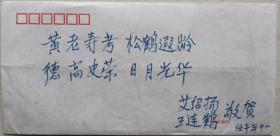 黄老寿考 松鹤遐龄
德高史荣 日月光华
艾绍扬
王连鹤 敬贺
伍年十一